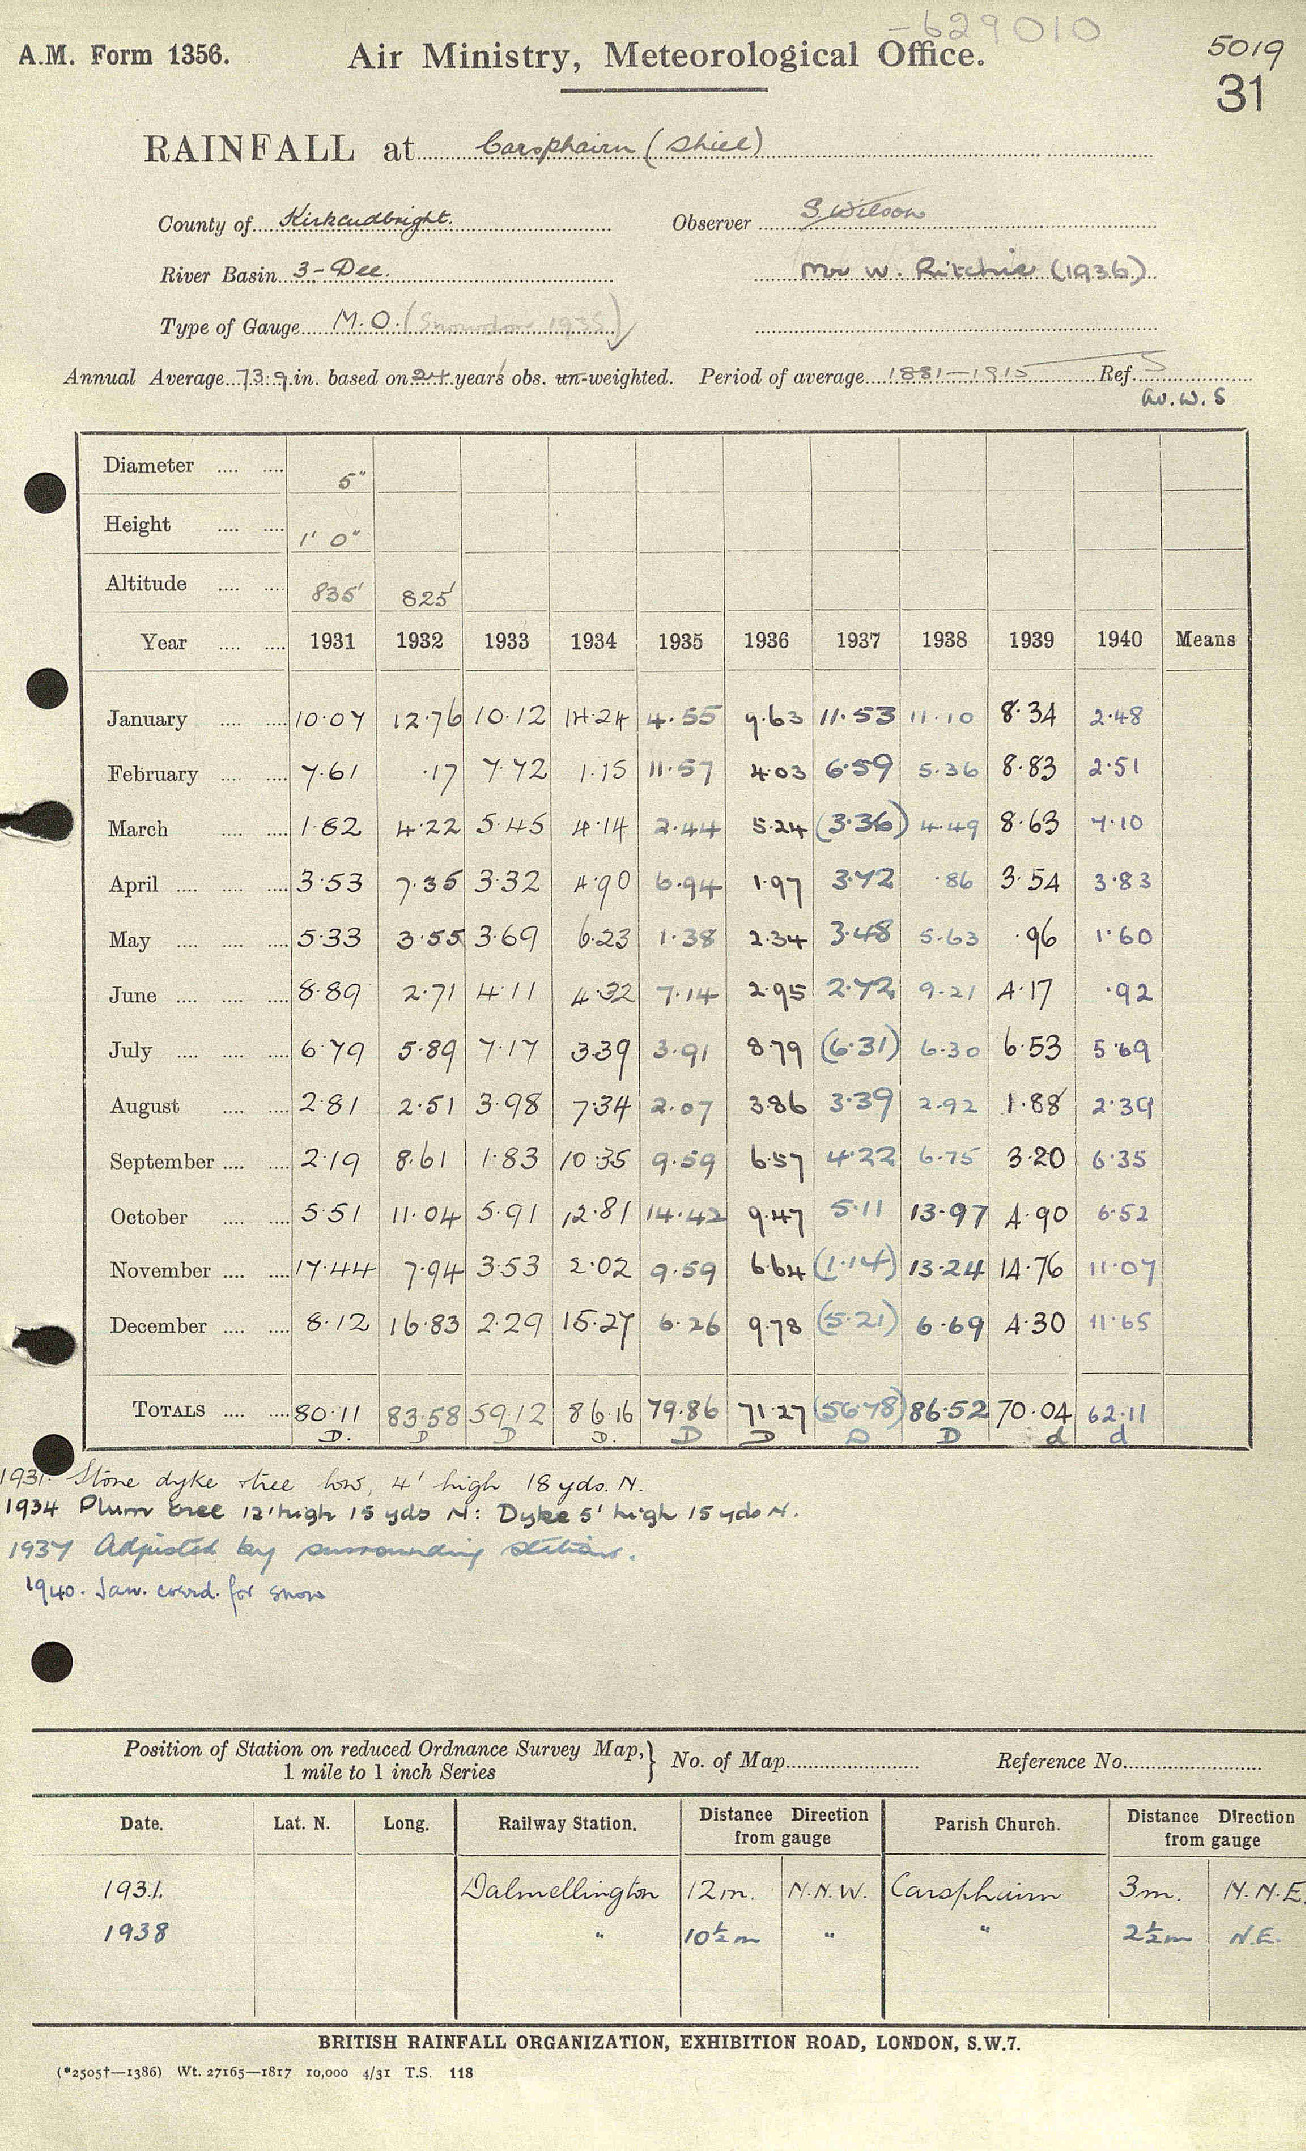 -629010
A.M. Form 1356. Air Ministry, Meteorological Office. 5019
31
RAINFALL at Carsphairn (Shiel)
County of Kirkcudbright. Observer S. Wilson
River Basin 3-Dee. Mr W. Ritchie (1936)
Type of Gauge M.O. (Snowdon 1935)
Annual Average 73.9 in. based on 24 years' obs. un-weighted. Period of average 1881-1915 Ref. S
Av. W. S
Diameter 5"
Height 1' 0"
Altitude 835' 825'
Year 1931 1932 1933 1934 1935 1936 1937 1938 1939 1940 Means
January 10·07 12·76 10·12 14·24 4·55 9·63 11·53 11·10 8·34 2·48
February 7·61 ·17 7·72 1·15 11·57 4·03 6·59 5·36 8·83 2·51
March 1·82 4·22 5·45 4·14 2·44 5·24 (3·36) 4·49 8·63 7·10
April 3·53 7·35 3·32 4·90 6·94 1·97 3·72 ·86 3·54 3·83
May 5·33 3·55 3·69 6·23 1·38 2·34 3·48 5·63 ·96 1·60
June 8·89 2·71 4·11 4·32 7·14 2·95 2·72 9·21 4·17 ·92
July 6·79 5·89 7·17 3·39 3·91 8·79 (6·31) 6·30 6·53 5·69
August 2·81 2·51 3·98 7·34 2·07 3·86 3·39 2·92 1·88 2·39
September 2·19 8·61 1·83 10·35 9·59 6·57 4·22 6·75 3·20 6·35
October 5·51 11·04 5·91 12·81 14·42 9·47 5·11 13·97 4·90 6·52
November 17·44 7·94 3·53 2·02 9·59 6·64 (1·14) 13·24 14·76 11·07
December 8·12 16·83 2·29 15·27 6·26 9·78 (5·21) 6·69 4·30 11·65
TOTALS 80·11 83·58 59·12 86·16 79·86 71·27 (56·78) 86·52 70·04 62·11
D. D D D. D D D D d d
1931. Stone dyke & tree low, 4' high 18 yds. N.
1934 Plum tree 12' high 15 yds N: Dyke 5' high 15 yds N.
1937 Adjusted by surrounding stations.
1940. Jan. corrd. for snow
Position of Station on reduced Ordnance Survey Map, 1 mile to 1 inch Series } No. of Map Reference No.
Date. Lat. N. Long. Railway Station. Distance Direction from gauge Parish Church. Distance Direction from gauge
1931. Dalmellington 12m. N.N.W. Carsphairn 3m. N.N.E.
1938 " 10½m " " 2½m N.E.
BRITISH RAINFALL ORGANIZATION, EXHIBITION ROAD, LONDON, S.W.7.
(*2505†—1386) Wt. 27165—1817 10,000 4/31 T.S. 118